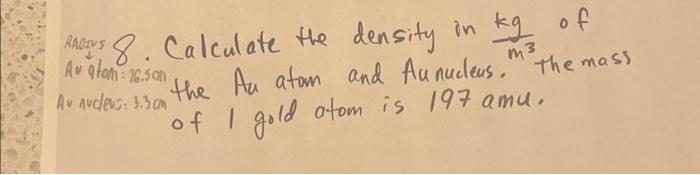 RADIUS
↓
Au atom: 16.5cm
Au nucleus: 3.3 cm
8. Calculate the density in kg/m³ of
the Au atom and Au nucleus. The mass
of 1 gold atom is 197 amu.